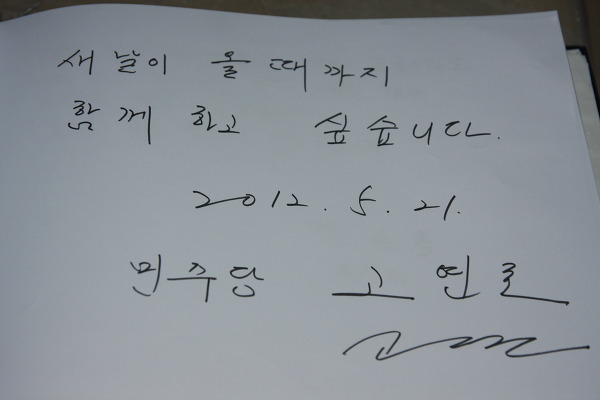 새 날이 올 때 까지
함께 하고 싶습니다.
2012. 5. 21.
민주당 고연호